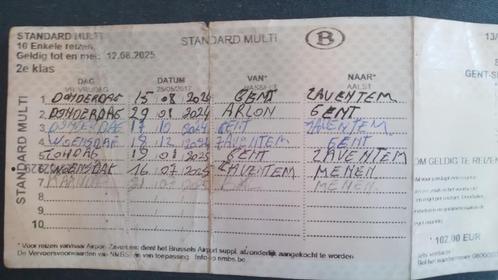 STANDARD MULTI
STANDARD MULTI
B
13/
10 Enkele reizen
Geldig tot en met: 12.08.2025
2e klas
DAG DATUM VAN* NAAR*
VRIJ/VRIJDAG 25/05/2017 HASSELT AALST
GENT-S
STANDARD MULTI
1. DONDERDAG 15 08 2024 GENT ZAVENTEM
2. DONDERDAG 29 08 2024 ARLON GENT
3. DONDERDAG 17 10 2024 GENT ZAVENTEM
4. WOENSDAG 18 12 2024 ZAVENTEM GENT
5. ZONDAG 19 01 2025 GENT ZAVENTEM
6. WOENSDAG 16 07 2025 ZAVENTEM MENEN
7. MENEN
8.
9.
10.
OM GELDIG TE REIZEN
107,00 EUR
* Voor reizen van/naar Airport-Zaventem: dient het Brussels Airport suppl. afzonderlijk aangekocht te worden
De Vervoersvoorwaarden van NMBS zijn van toepassing. Info op nmbs.be